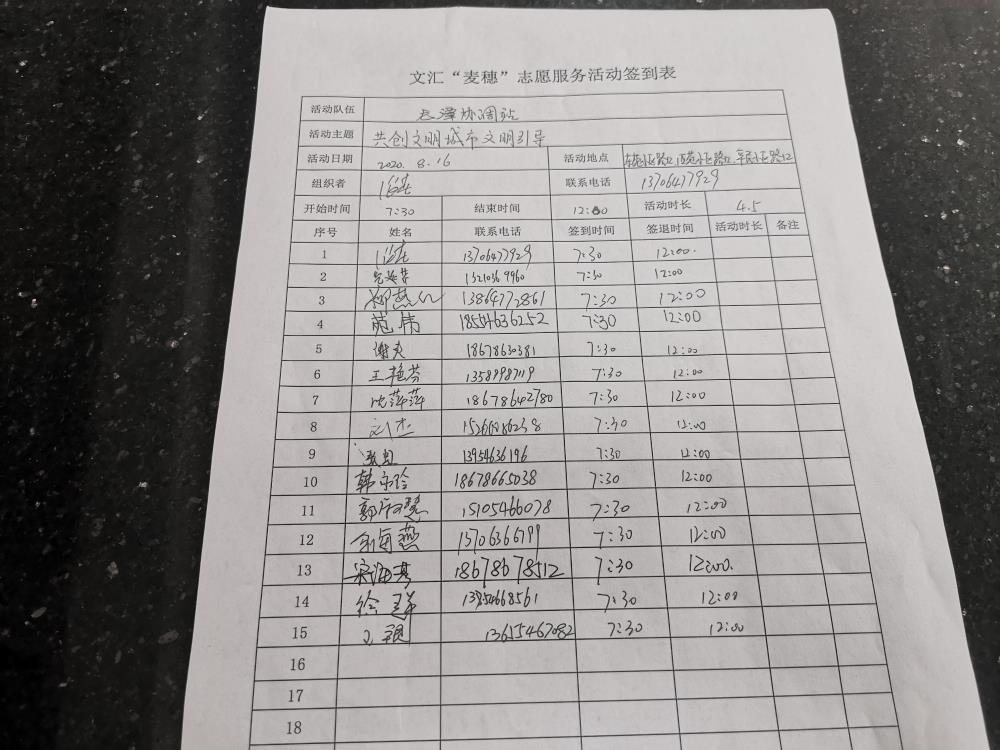 文汇“麦穗”志愿服务活动签到表
活动队伍 协调站
活动主题 共创文明城市文明引导
活动日期 2020.8.16 活动地点
组织者 联系电话 13706477929
开始时间 7:30 结束时间 12:00 活动时长 4.5
序号 姓名 联系电话 签到时间 签退时间 活动时长 备注
1 13706477929 7:30 12:00.
2 13210369960 7:30 12:00
3 13864772861 7:30 12:00
4 范伟 18554636252 7:30 12:00
5 18678630381 7:30 12:00
6 王艳芬 7:30 12:00
7 沈萍萍 18678642780 7:30 12:00
8 刘杰 7:30 12:00
9 13954636196 7:30 12:00
10 韩 18678665038 7:30 12:00
11 15105466078 7:30 12:00
12 13706366799 7:30 12:00
13 18678678512 7:30 12:00.
14 徐群 7:30 12:00
15 13615467082 7:30 12:00
16
17
18